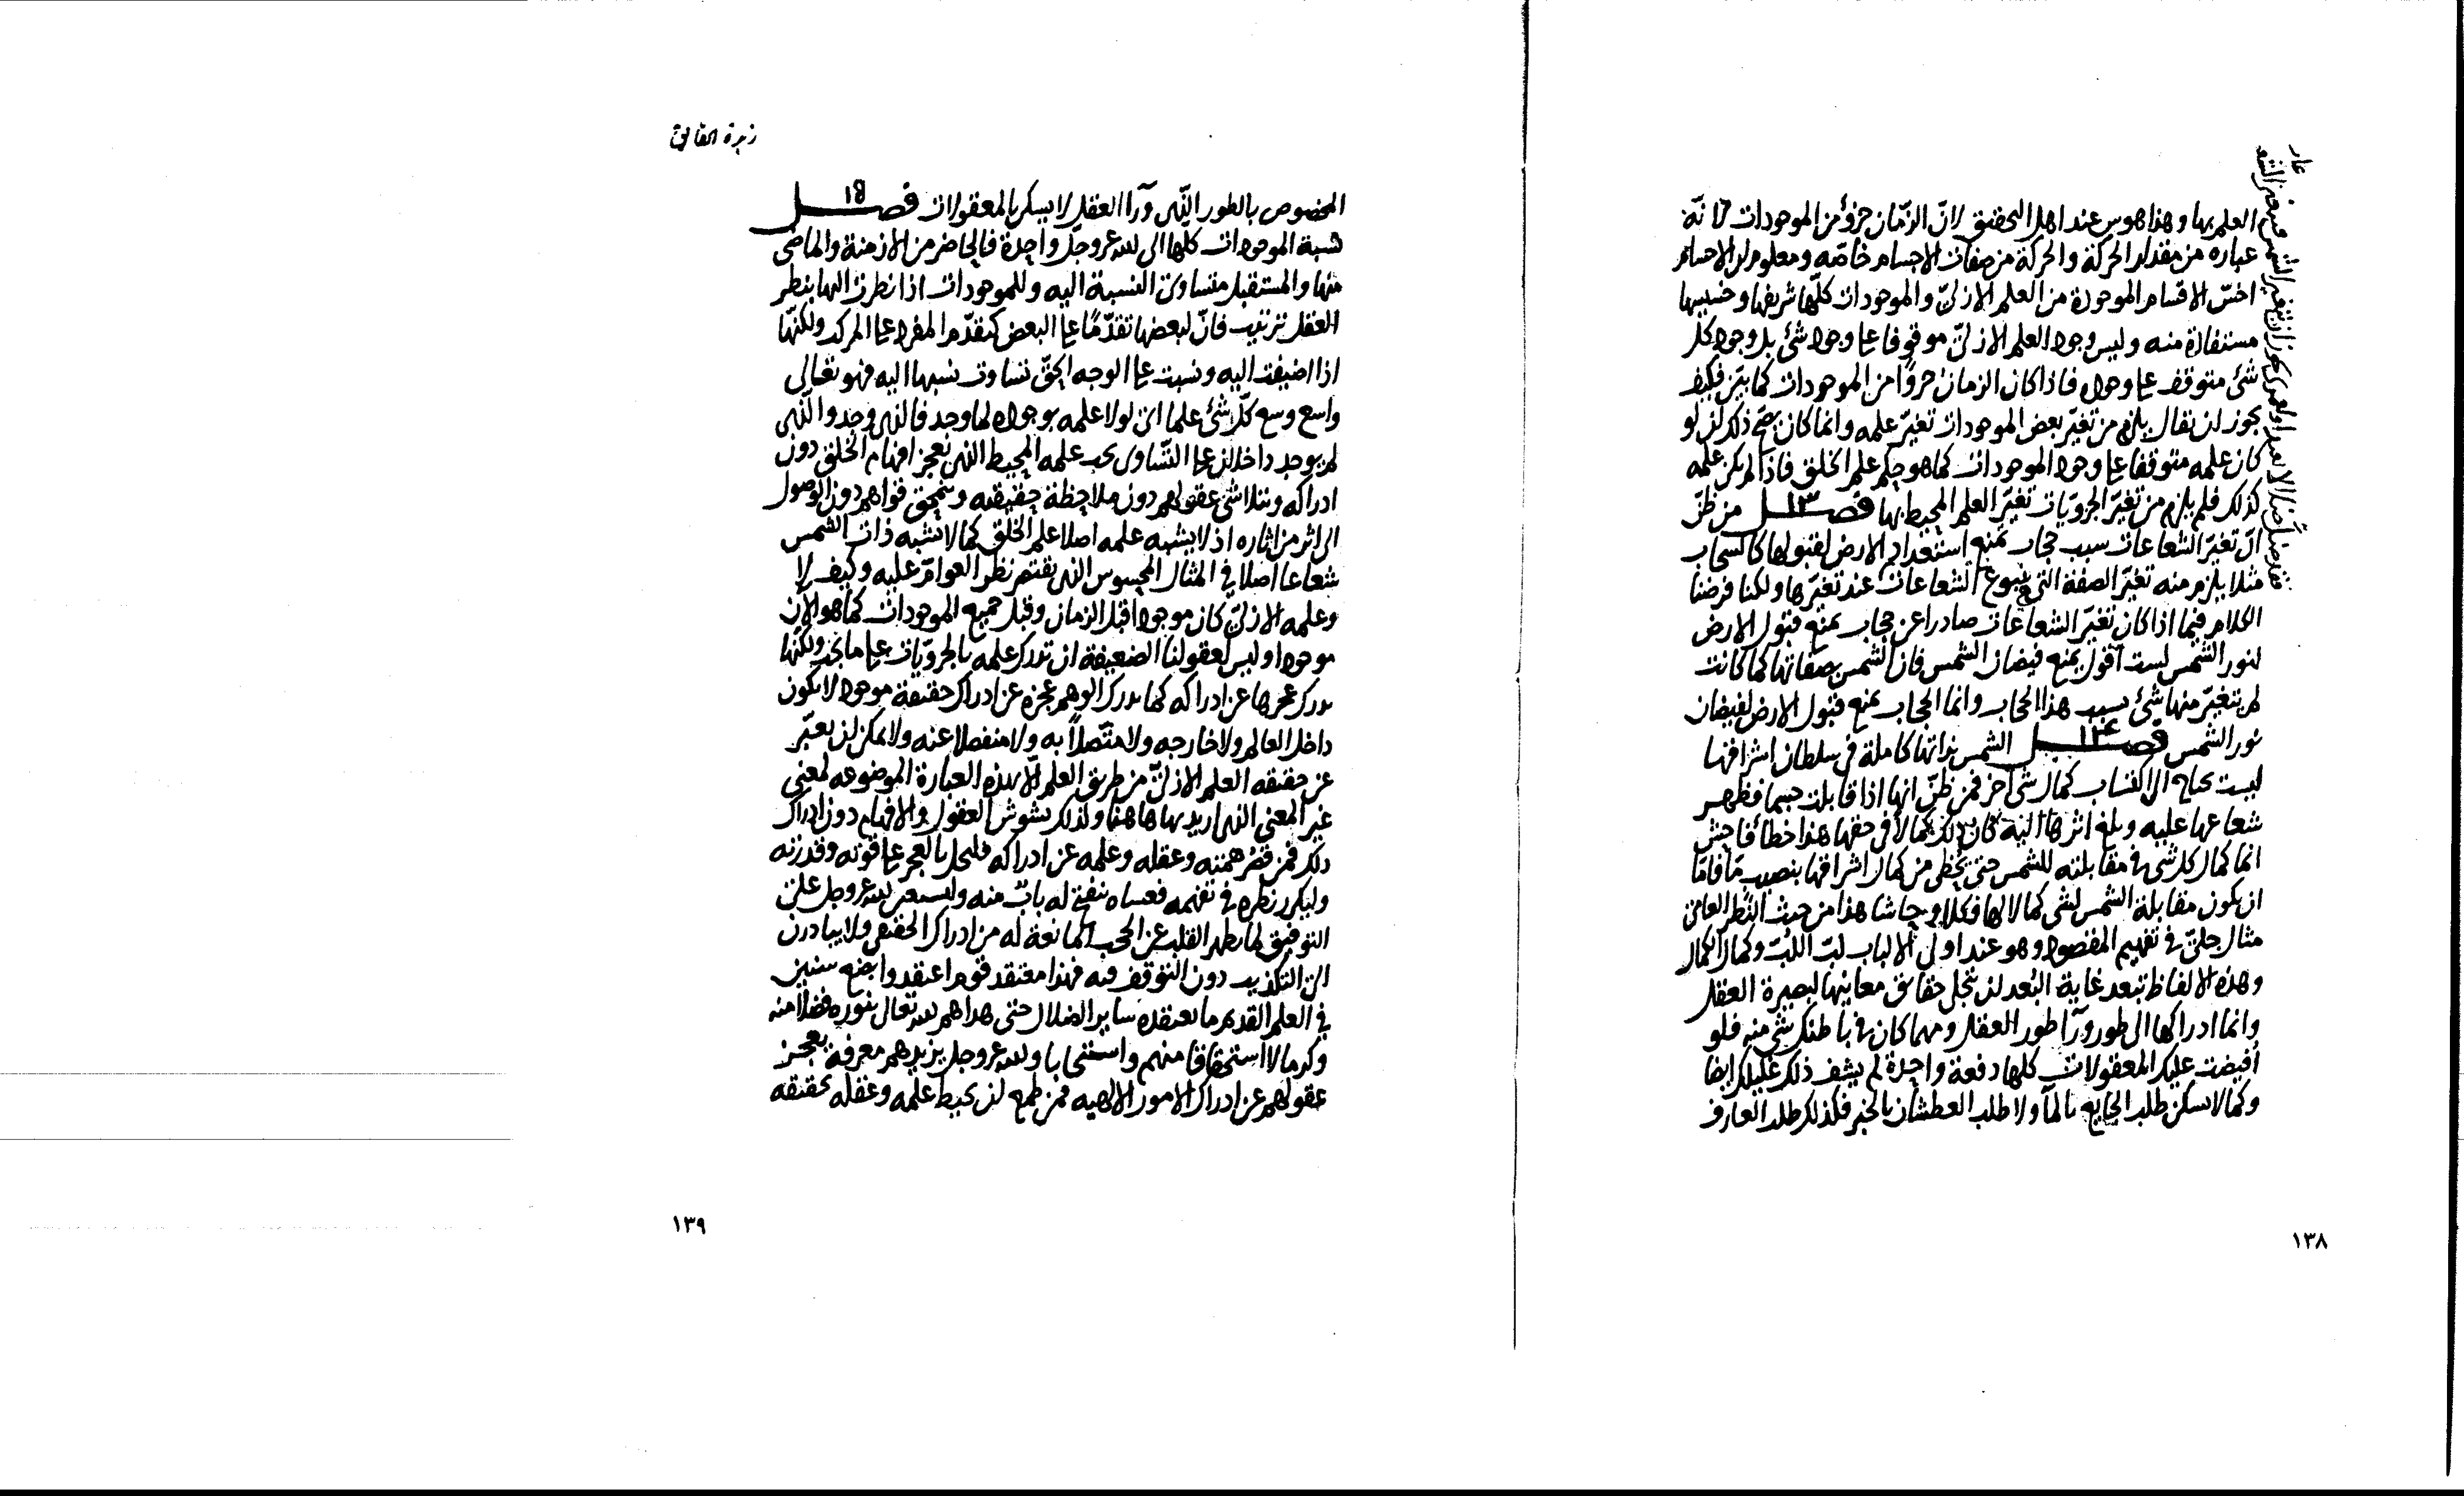 العلم بها وهذا هوس عند اهل التحقيق لانّ الزّمان جزؤ من الموجودات لانّه
عباره من مقدار الحركة والحركة من صفات الاجسام خاصّه ومعلوم ان الاجسام
اخسّ الاقسام الموجودة من العلم الازلىّ والموجودات كلّها شريفها وخسيسها
مستفادة منه وليس وجود العلم الازلىّ موقوفا على وجود شئ بل وجود كل
شئ متوقف على وجوده فاذا كان الزمان جزوًا من الموجودات كما بيّن فكيف
يجوز ان يقال يلزم من تغيّر بعض الموجودات تغيّر علمه وانما كان يصحّ ذلك ان لو
كان علمه متوقفا على وجود الموجودات كما هو حكم علم الخلق فاذا لم يكن علمه
كذلك فلم يلزم من تغيّر الجزويّات تغيّر العلم المحيط بها فصل ١٣ من ظنّ
انّ تغيّر الشعاعات بسبب حجاب يمنع استعداد الارض لقبولها كالسحاب
مثلا يلزم منه تغيّر الصفة التى هى ينبوع الشعاعات عند تغيّرها ولكنا فرضنا
الكلام فيما اذا كان تغيّر الشعاعات صادرا عن حجاب يمنع قبول الارض
لنور الشمس لست اقول يمنع فيضان الشمس فان الشمس بصفاتها كما كانت
لم يتغيّر منها شئ بسبب هذا الحجاب وانما الحجاب يمنع قبول الارض لفيضان
نور الشمس فصل ١٤ الشمس بذاتها كاملة فى سلطان اشراقها
ليست تحتاج الى اكتساب كمال شئ آخر فمن ظنّ انها اذا قابلت جسما فظهر
شعاعها عليه وبلغ اثرها اليه كان ذلك كمالا فى حقها هذا خطأ فاحش
انما كمال كل شئ فى مقابلته للشمس حتى يحظى من كمال اشراقها بنصيب مّا فامّا
ان يكون مقابلة الشمس لشئ كمالا لها فكلا وحاشا هذا من حيث النّظر العامى
مثال جلىّ فى تفهيم المقصود وهو عند اولى الالباب لبّ اللّبّ وكمال الكمال
وهذه الالفاظ تبعد غاية البُعد ان تجلى حقايق معانيها لبصيرة العقل
وانما ادراكها الى طور ورآ طور العقل ومهما كان فى باطنك شئ منه فلو
أفيضت عليك المعقولات كلها دفعة واحدة لم يشف ذلك غليلك ايضا
وكما لا يسكن طلب الجايع بالمآ ولا طلب العطشان بالخبز فكذلك طلب العارف
١٣٨
زبدة الحقائق
المخصوص بالطور الذى ورآ العقل لا يسكن بالمعقولات فصل ١٥
نسبة الموجودات كلّها الى الله عز وجلّ واحدة فالحاضر من الازمنة والماضى
منها والمستقبل متساوى النسبة اليه وللموجودات اذا نظرت اليها بنظر
العقل ترتيب فانّ لبعضها تقدّمًا على البعض كتقدّم المفرد على المركب ولكنّها
اذا اضيفت اليه ونسبت على الوجه الحقّ تساوت نسبها اليه فهو تعالى
واسع وسع كلّ شئ علما اى لولا علمه بوجوده لما وجد فالذى وجد والّذى
لم يوجد داخلان على التّساوى تحت علمه المحيط الذى تعجز افهام الخلق دون
ادراكه وتتلاشى عقولهم دون ملاحظة حقيقته وينمحق قواهم دون الوصول
الى اثر من اثاره اذ لا يشبه علمه اصلا علم الخلق كما لا تشبه ذات الشمس
شعاعا اصلا فى المثال المحسوس الذى يقتصر نظر العوامّ عليه وكيف لا
وعلمه الازلىّ كان موجودا قبل الزمان وقبل جميع الموجودات كما هو الان
موجودا وليس لعقولنا الضعيفة ان تدرك علمه بالجزويّات على ما يجب ولكنّها
يدرك عجزها عن ادراكه كما يدرك الوهم عجزه عن ادراك حقيقة موجود لا يكون
داخل العالم ولا خارجه ولا متّصلاً به ولا منفصلا عنه ولا يمكن ان يعبّر
عن حقيقه العلم الازلىّ من طريق العلم الّا بهذه العبارة الموضوعه لمعنى
غير المعنى الذى اريد بها هاهنا ولذلك يشوش العقول والافهام دون ادراك
ذلك فمن قصّر همته وعقله وعلمه عن ادراكه فليحل بالعجز على قوته وقدرته
وليكرر نظره فى تفهمه فعساه ينفتح له باب منه وليستعن بالله عز وجل على
التوفيق لما يطهر القلب عن الحجب المانعة له من ادراك الحقيقى ولا يبادرن
الى التكذيب دون التوقف فيه فهذا معتقد قوم اعتقدوا بضع سنين
فى العلم القديم ما يعتقده ساير الضلال حتى هداهم الله تعالى بنوره فضلا منه
وكرما لا استحقاقا منهم واستيجابا والله عز وجل يزيدهم معرفة بعجز
عقولهم عن ادراك الامور الالهيه فمن طمع ان يحيط علمه وعقله بحقيقه
١٣٩